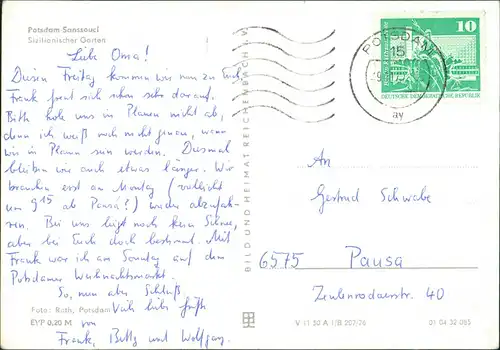 Potsdam-Sanssouci
Sizilianischer Garten
Liebe Oma!
Diesen Freitag kommen wir nun zu Euch,
Frank freut sich schon sehr darauf.
Bitte hole uns in Plauen nicht ab,
denn ich weiß noch nicht genau, wann
wir in Plauen sein werden. Diesmal
bleiben wir auch etwas länger. Wir
brauchen erst am Montag (vielleicht
um 9 15 ab Pausa?) wieder abzufah-
ren. Bei uns liegt noch kein Schnee,
aber bei Euch doch bestimmt. Mit
Frank war ich am Sonntag auf dem
Potsdamer Weihnachtsmarkt.
So, nun aber Schluß,
Foto: Roth, Potsdam
Viele liebe Grüße
EVP 0,20 M
von
Frank, Betty und Wolfgang.
BILD UND HEIMAT REICHENBACH I. V.
V 11 50 A 1/B 207/76
01 04 32 065
POTSDAM
15
ay
10
DEUTSCHE DEMOKRATISCHE REPUBLIK
An
Gertrud Schwabe
6575 Pausa
Zeulenrodaerstr. 40